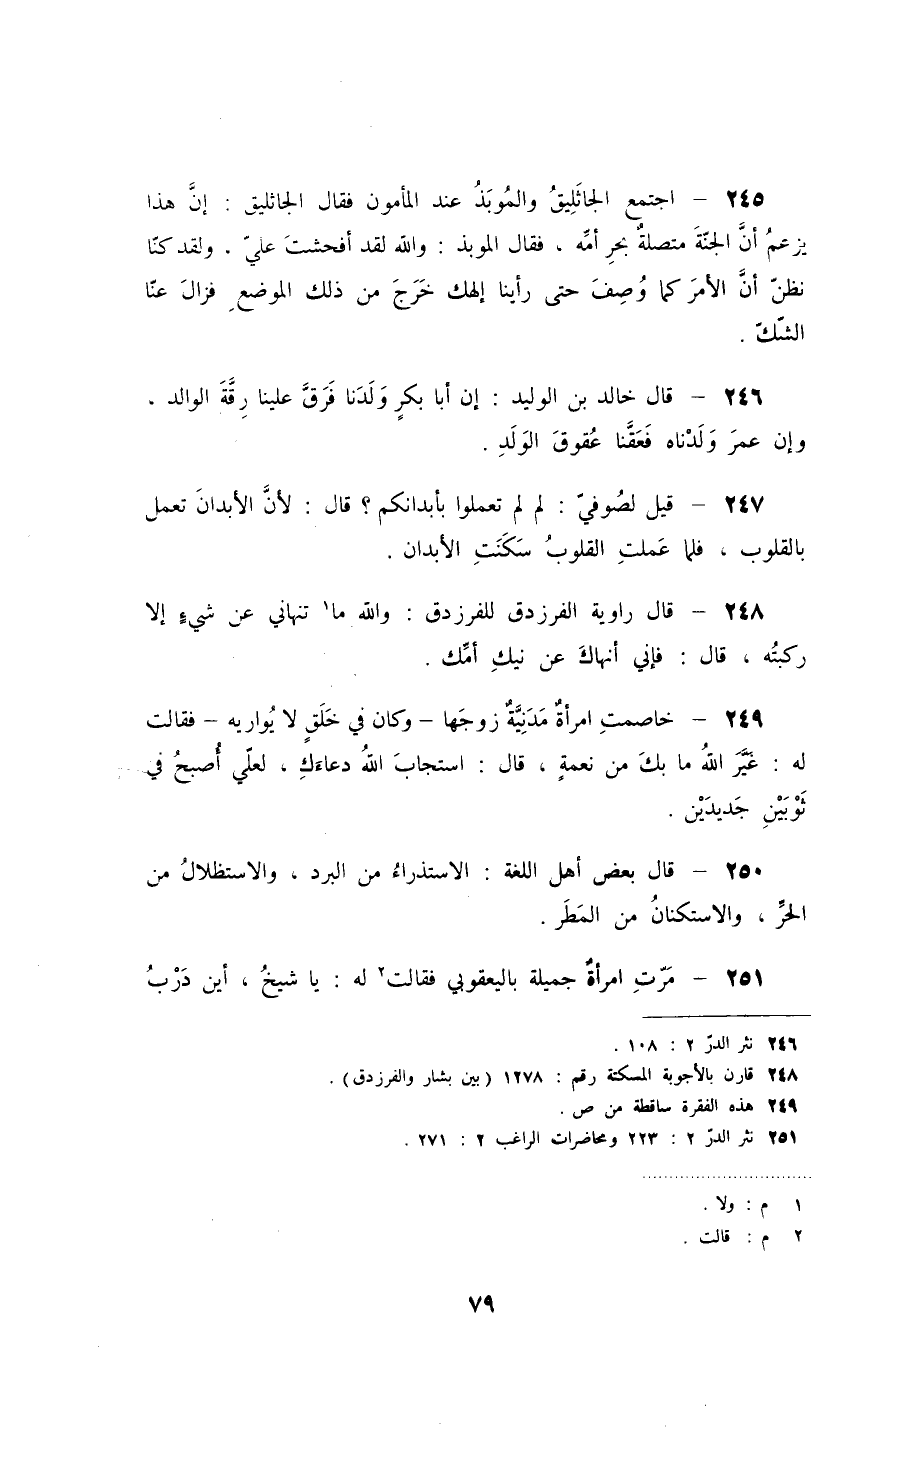 ٢٤٥ – اجتمع الجاثَلِيقُ والمُوبَذُ عند المأمون فقال الجاثليق : إنَّ هذا
يزعمُ أنَّ الجنّةَ متصلةٌ بحرِ أمِّه ، فقال الموبذ : والله لقد أفحشتَ عليّ . ولقد كنّا
نظنّ أنَّ الأمرَ كما وُصِفَ حتى رأينا إلهك خَرَجَ من ذلك الموضعِ فزالَ عنّا
الشّكّ .
٢٤٦ – قال خالد بن الوليد : إن أبا بكرٍ وَلَدَنا فَرَقَّ علينا رِقَّةَ الوالد .
وإن عمرَ وَلَدْناه فَعَقَّنا عُقوقَ الوَلَدِ .
٢٤٧ – قيل لصُوفيّ : لم لم تعملوا بأبدانكم ؟ قال : لأنَّ الأبدانَ تعمل
بالقلوب ، فلما عَملتِ القلوبُ سَكَنَتِ الأبدان .
٢٤٨ – قال راوية الفرزدق للفرزدق : والله ما١ تنهاني عن شيءٍ إلا
ركبتُه ، قال : فإني أنهاكَ عن نيكِ أمِّك .
٢٤٩ – خاصمتِ امرأةٌ مَدَنِيَّةٌ زوجَها – وكان في خَلَقٍ لا يُواريه – فقالت
له : غَيَّرَ اللهُ ما بكَ من نعمةٍ ، قال : استجابَ اللهُ دعاءَكِ ، لعلّي أُصبحُ في
ثَوْبَيْنِ جَديدَيْن .
٢٥٠ – قال بعض أهل اللغة : الاستذراءُ من البرد ، والاستظلالُ من
الحرِّ ، والاستكنانُ من المَطَرِ .
٢٥١ – مَرّتِ امرأةٌ جميلة باليعقوبي فقالت٢ له : يا شيخُ ، أين دَرْبُ
٢٤٦ نثر الدرّ ٢ : ١٠٨ .
٢٤٨ قارن بالأجوبة المسكتة رقم : ١٢٧٨ ( بين بشار والفرزدق ) .
٢٤٩ هذه الفقرة ساقطة من ص .
٢٥١ نثر الدرّ ٢ : ٢٢٣ ومحاضرات الراغب ٢ : ٢٧١ .
١ م : ولا .
٢ م : قالت .
٧٩